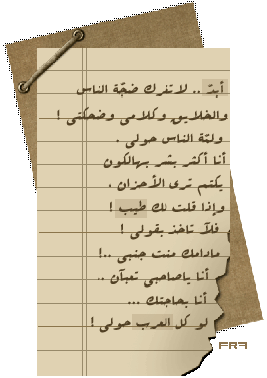 أبدّ .. لا تغرك ضجّة الناس
والخلايق وكلامي وضحكتي !
ولمّة الناس حولي .
أنا أكثر بشر بهالكون
يكتم ترى الأحزان .
وإذا قلت لك طيب !
فلا تاخذ بقولي !
مادامك منت جنبي ..!
أنا ياصاحبي تعبان ..
أنا بحاجتك ...
لو كل العرب حولي !
FR7